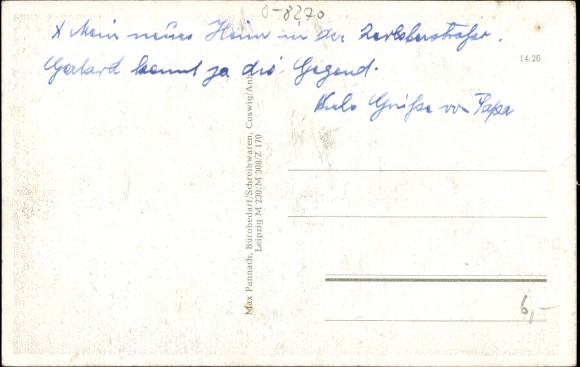 O-8270
x Mein neues Heim in der Zerbsterstraße.
14/26
Gerhard kennt ja die Gegend.
Viele Grüße von Papa
Max Pannach, Bürobedarf/Schreibwaren, Coswig/Anh
Leipzig M 230/M 308/Z 170
6,-